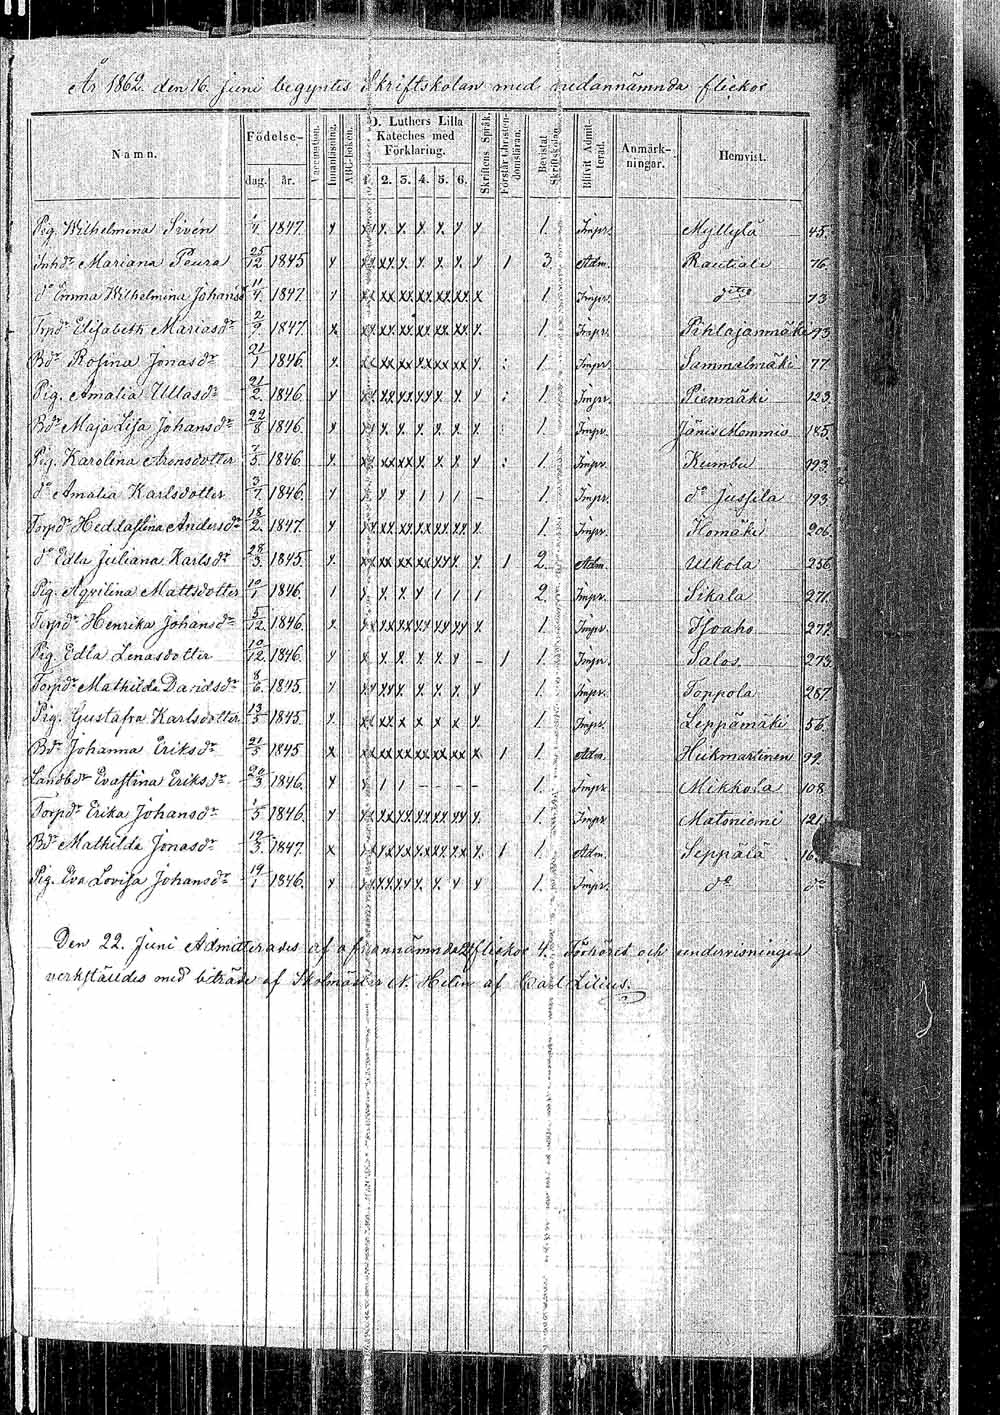 År 1862 den 16. Juni begyntes Skriftskolan med nedannämnda flickor
Namn. Födelse- dag. år. Vaccination. Innanläsning. ABC-boken. D. Luthers Lilla Kateches med Förklaring. 1. 2. 3. 4. 5. 6. Skriftens Språk. Förstår Christendomsläran. Bevistat Skriftskolan. Blifvit Admitterad. Anmärkningar. Hemvist.
Pig. Wilhelmina Sivén 1/4 1847. 1. Impr. Myllylä 45.
Inhdr Mariana Peura 25/12 1845 1 3. Adm. Rautiala 76.
do Emma Wilhelmina Johansd 11/4 1847 1. Impr. dito 73
Trpdr Elisabeth Mariasdr 2/9 1847. 1. Impr. Pihlajanmäki 93
Bdr Rosina Jonasdr 21/1 1846. 1. Impr. Sammalmäki 77
Pig. Amalia Ullasdr 21/2 1846. 1. Impr. Pienmäki 123
Bdr Maja Lisa Johansdr 22/8 1846. 1. Impr. Jänis Mommio 185.
Pig. Karolina Aronsdotter 7/5 1846 1. Impr. Kumbu 193
do Amalia Karlsdotter 3/7 1846. 1 Impr. do Jussila 193
Torpdr Heddastina Andersdr 18/2 1847. 1. Impr. Homäki 206.
do Edla Juliana Karlsdr 28/3 1845. 1 2. Adm. Ulkola 256
Pig. Aqvilina Mattsdotter 10/1 1846. 2. Impr. Sikala 271.
Torpdr Henrika Johansdr 5/12 1846. 1. Impr. Isoaho 272.
Pig. Edla Lenasdotter 10/12 1846. 1 1. Impr. Salos 273.
Torpdr Mathilda Davidsdr 8/6 1845. 1. Impr. Toppola 287.
Pig. Gustafva Karlsdotter 13/5 1845. 1. Impr. Leppämäki 56.
Bdr Johanna Eriksdr 21/5 1845 1 1. Adm. Heikmartinen 99.
Landbdr Evastina Eriksdr 20/3 1846. 1. Impr Mikkola 108
Torpdr Erika Johansdr 1/5 1846. 1. Impr Matoniemi 121
Bdr Mathilda Jonasdr 19/3 1847. 1 1. Adm. Seppälä
Pig. Eva Lovisa Johansdr 19/1 1846. 1. Impr. do do
Den 22. Juni Admitterades af ofvannämnda 21 flickor 4. Förhöret och undervisningen
verkställdes med biträde af Skolmäster N. Helin af Carl Lilius.